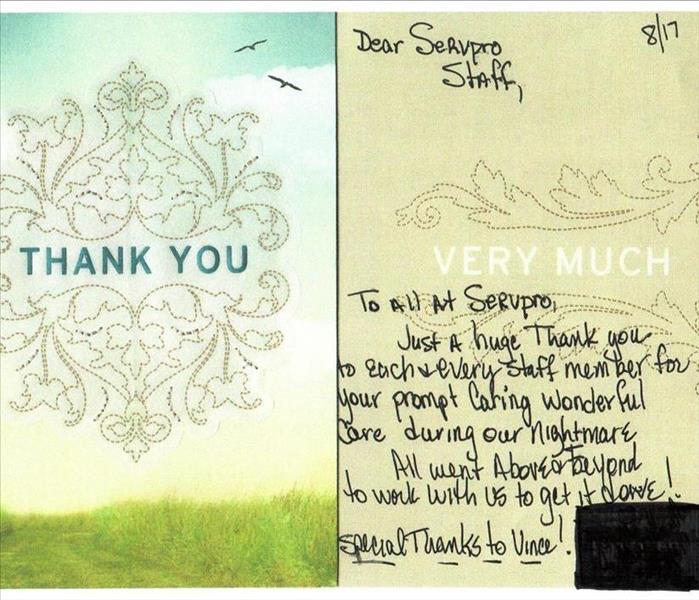 THANK YOU
8/17
Dear Servpro
Staff,
VERY MUCH
To All At Servpro,
Just A huge Thank you
to Each & Every Staff member for
your prompt Caring wonderful
Care during our Nightmare
All went Above & Beyond
to work with us to get it done!
special Thanks to Vince!